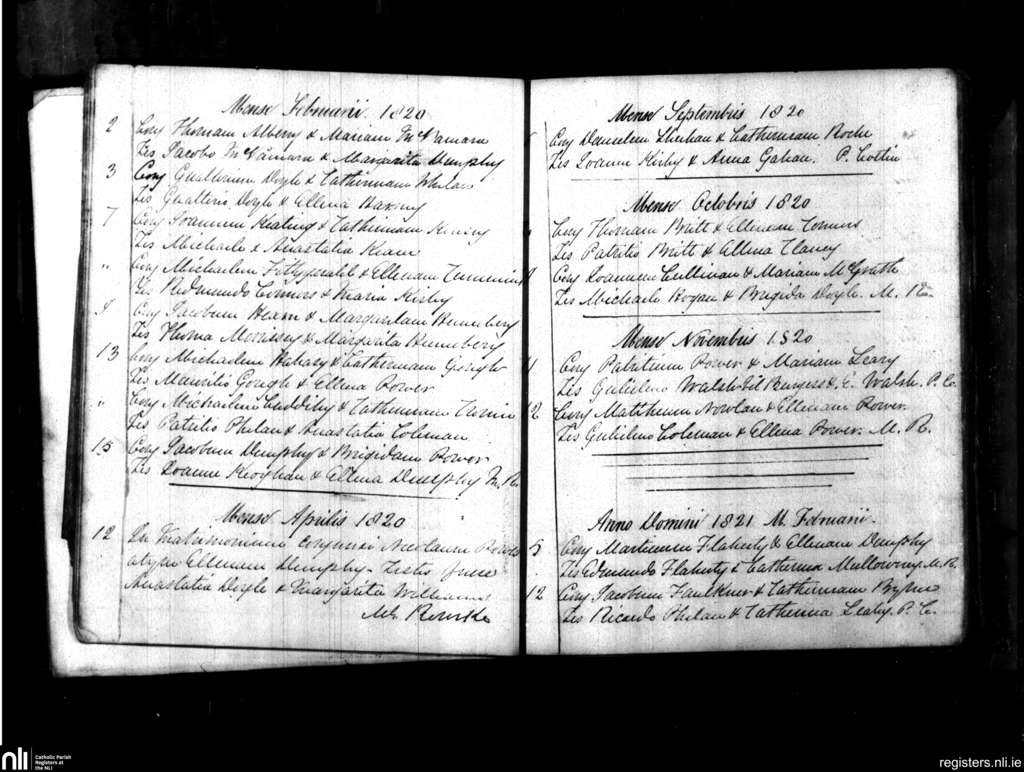 Mense Februarii 1820
2 Conj Thomam Alberry & Mariam McNamara
Tes Jacobo McNamara & Margarita Dempsey
3 Conj Gualterum Doyle & Catherinam Whelan
Tes Gualtero Doyle & Ellena
7 Conj Joannem Keating & Catherinam
Tes Michaele & Anastatia
" Conj Michaelem Fitzgerald & Ellenam Cummins
Tes Redmundo Connors & Maria Kirby
9 Conj Jacobum Hearn & Margaritam Henneberry
Tes Thoma Morrissey & Margarita Henneberry
13 Conj Michaelem & Catherinam Gough
Tes Mauritio Gough & Ellena Power
" Conj Michaelem Cuddihy & Catherinam
Tes Patritio Phelan & Anastatia Coleman
15 Conj Jacobum Dempsey & Brigidam Power
Tes Joanne Keoghan & Ellena Dempsey M. R.
Mense Aprilis 1820
12 In Matrimonium conjunxi Nicolaum Power
atque Ellenam Dempsey. Testes fuere
Anastatia Doyle & Margarita Williams
Ml. Rourke
Mense Septembris 1820
Conj Danielem Sheehan & Catherinam Roche
Tes Joanne Kirby & Anna Gahan. P. Costin
Mense Octobris 1820
Conj Thomam Britt & Ellenam Connors
Tes Patritio Britt & Ellena Clancy
8 Conj Joannem Cullivan & Mariam McGrath
Tes Michaele Hogan & Brigida Doyle. M. R.
Mense Novembris 1820
Conj Patritium Power & Mariam Leary
Tes Gulielmo Walsh & E. Walsh. P. C.
12 Conj Mattheum Nowlan & Ellenam Power
Tes Gulielmo Coleman & Ellena Power. M. R.
Anno Domini 1821 M. Februarii.
5 Conj Martinum Flaherty & Ellenam Dempsey
Tes Edmundo Flaherty & Catherina Mullowney. M. R.
12 Conj Jacobum Faulkner & Catherinam Byrne
Tes Ricardo Phelan & Catherina Leahy. P. C.
nli
Catholic Parish
Registers at
the NLI
registers.nli.ie